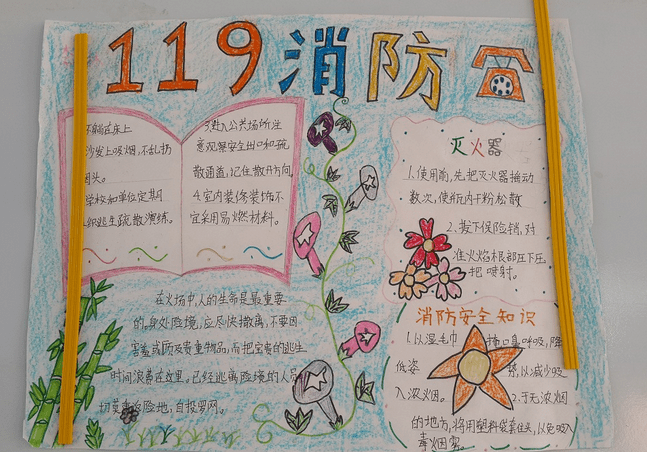 119消防
不躺在床上
沙发上吸烟,不乱扔
头。
学校和单位定期
织逃生疏散演练。
3.进入公共场所注
意观察安全出口和疏
散通道,记住散开方向
4.室内装修装饰不
宜采用易燃材料。
在火场中,人的生命是最重要
的,身处险境,应尽快撤离,不要因
害羞或顾及贵重物品,而把宝贵的逃生
时间浪费在这里。已经逃离险境的人员
切莫重返险地,自投罗网。
灭火器
1.使用前,先把灭火器摇动
数次,使瓶内干粉松散
2.拨下保险销,对
准火焰根部压下压
把喷射。
消防安全知识
1.以湿毛巾掩口鼻呼吸,降
低姿势,以减少吸
入浓烟。
2.于无浓烟
的地方,将用塑料袋套住头,以免吸入
毒烟雾。